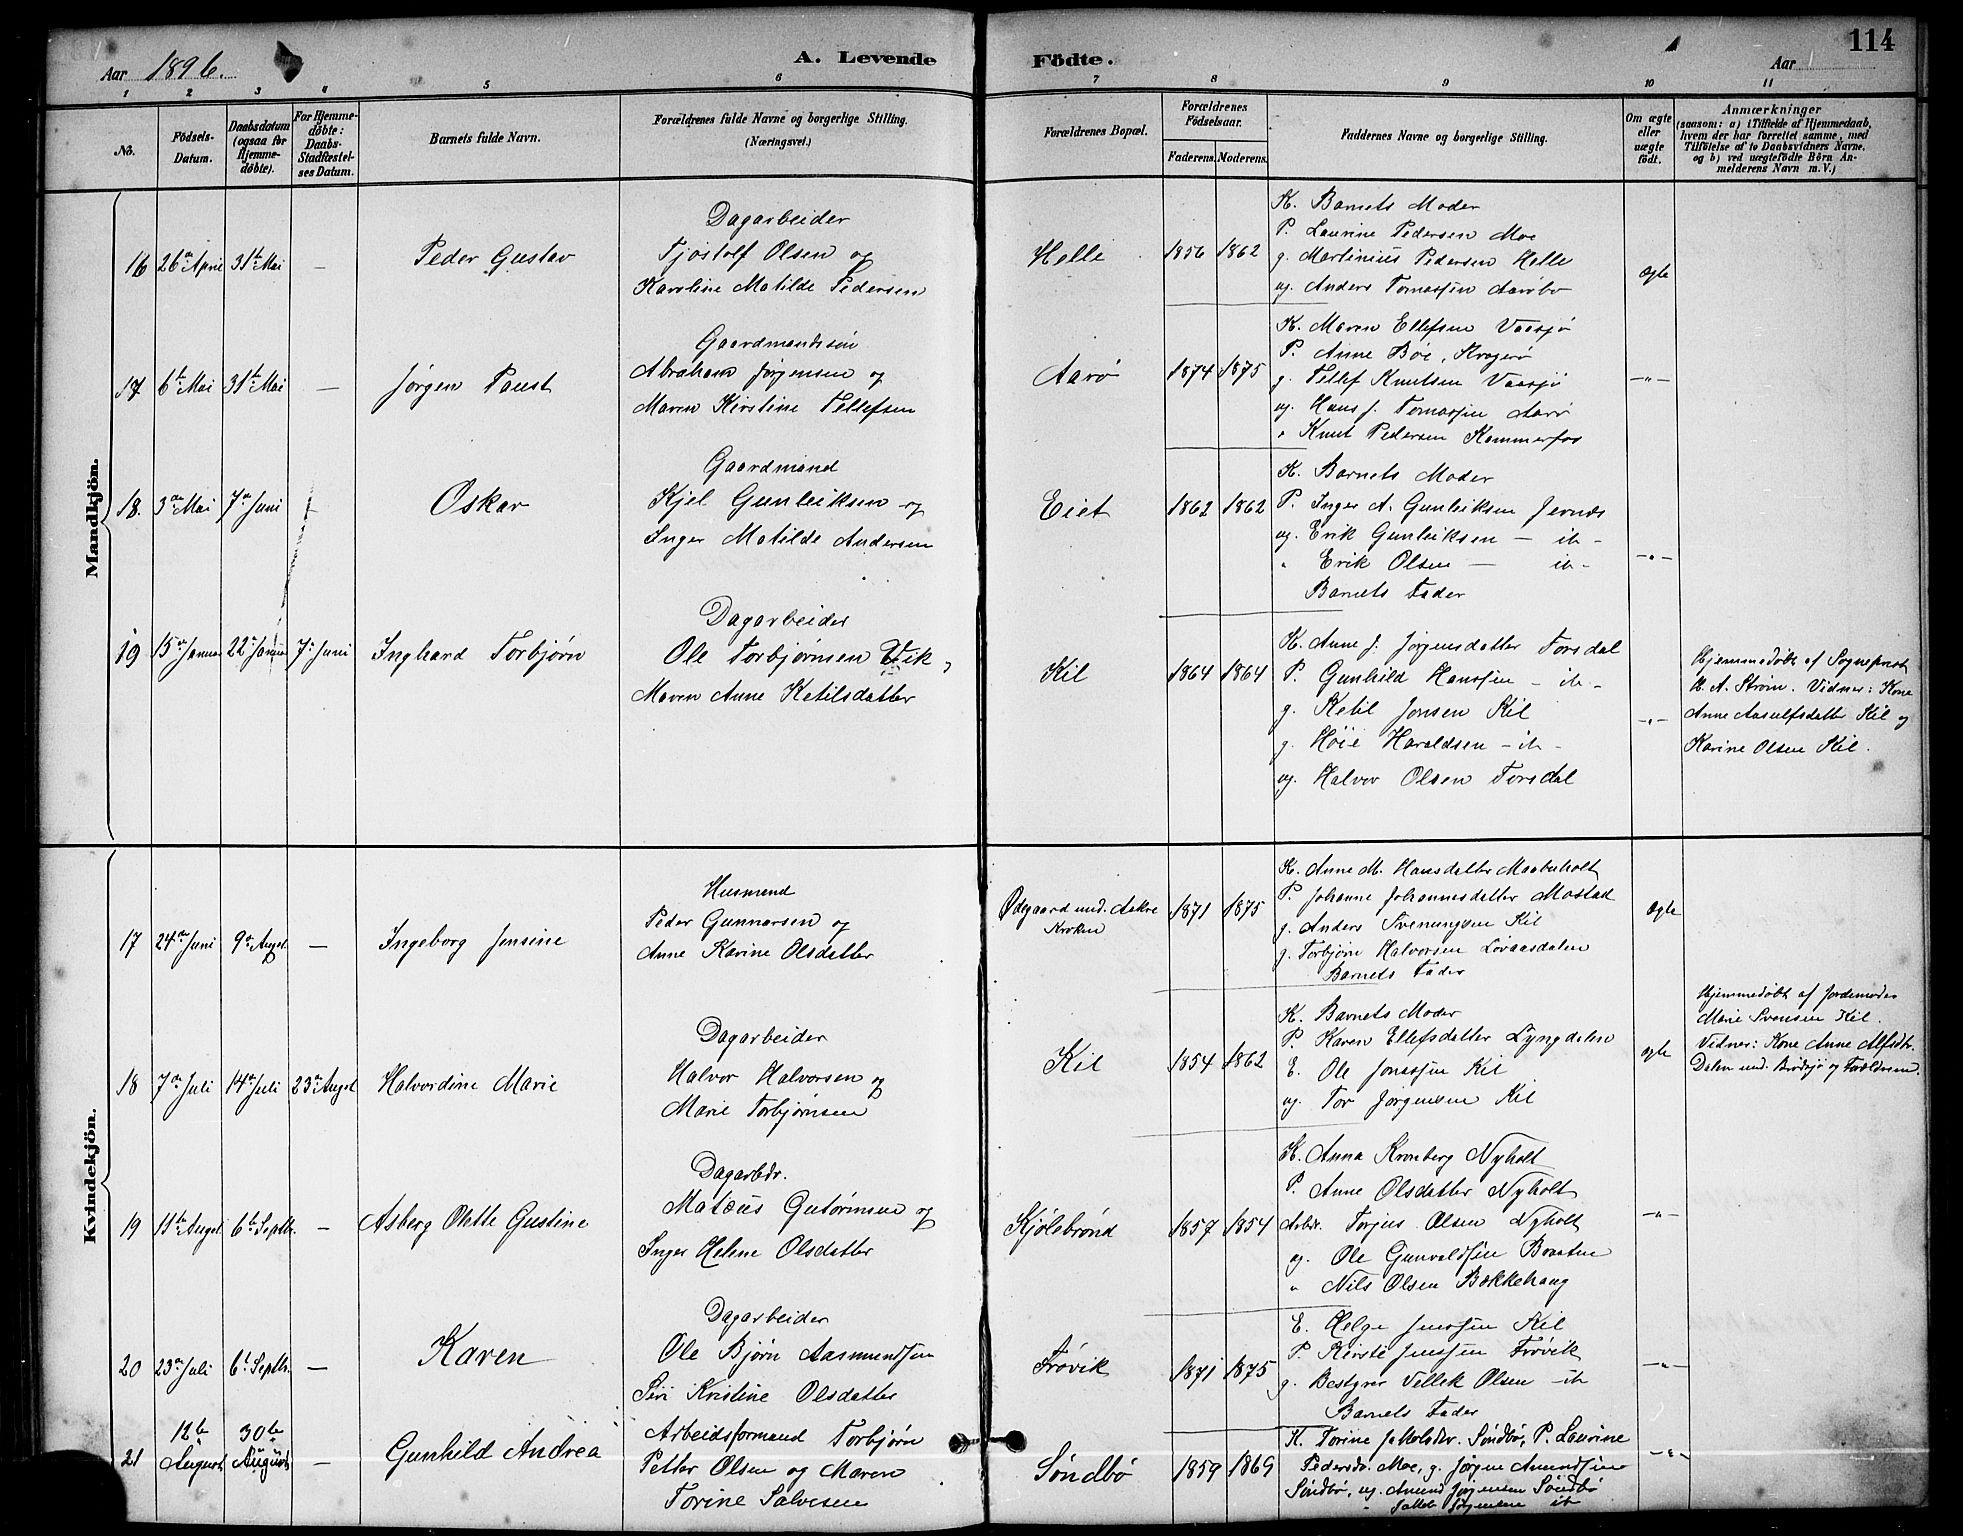 114
Aar 1896.
A. Levende
Födte.
Aar 1
1 2 3 4 5 6 7 8 9 10 11
No.
Födsels-
Datum.
Daabsdatum
(ogsaa for
Hjemme-
döbte).
For Hjemme-
döbte:
Daabs-
Stadfæstel-
ses Datum.
Barnets fulde Navn.
Forældrenes fulde Navne og borgerlige Stilling.
(Næringsvei.)
Forældrenes Bopæl.
Forældrenes
Födselsaar.
Faderens. Moderens.
Faddernes Navne og borgerlige Stilling.
Om ægte
eller
uægte
födt.
Anmærkninger
(saasom: a) i Tilfælde af Hjemmedaab,
hvem der har forrettet samme, med
Tilföielse af to Daabsvidners Navne,
og b) ved uægtefödte Börn An-
melderens Navn m. V.)
Mandkjön.
16 26de April 31te Mai — Peder Gustav
Dagarbeider
Tjostolf Olsen og
Karoline Matilde Pedersen
Helle 1856 1862
K. Barnets Moder
P. Laurine Pedersen Moe
g. Martinius Pedersen Helle
ug. Anders Tomassen Aarøbø
ægte
17 6te Mai 31te Mai — Jørgen Faust
Gaardmandssøn
Abraham Jørgensen og
Maren Kirstine Tellefsen
Aarø 1874 1875
K. Maren Ellefsen Vaasjø
P. Anne Bøe, Kragerø
g. Tellef Knutsen Vaasjø
ug. Hans J. Tomassen Aarø
" Knut Pedersen Kammerfos
—"—
18. 3de Mai 7de Juni — Oskar
Gaardmand
Kjel Gunleiksen og
Inger Matilde Andersen
Eiet 1862 1862
K. Barnets Moder
P. Inger A. Gunleiksen Jernæs
ug. Erik Gunleiksen — ib —
" Erik Olsen — ib —
Barnets Fader
—"—
19 15de Januar 22de Januar 7de Juni Inghard Torbjørn
Dagarbeider
Ole Torbjørnsen Vik,
Maren Anne Ketilsdatter
Kil 1864 1864
K. Anne J. Jørgensdatter Torsdal
P. Gunhild Hanssen — ib —
g. Ketil Jonsen Kil
g. Høie Haraldsen — ib —
ug. Halvor Olsen Torsdal
—"—
Hjemmedøbt af Sogneprest
H. A. Strøm. Vidner: Kone
Anne Aasulfsdatter Kil og
Karine Olsen Kil.
Kvindekjön.
17 24de Juni 9de August — Ingeborg Jensine
Husmand
Peder Gunnarsen og
Anne Karine Olsdatter
Ødegaard und. Aakre
Kroken
1871 1875
K. Anne M. Hansdatter Maaberholt
P. Johanne Johannesdatter Mostad
g. Anders Svenungsen Kil
g. Torbjørn Halvorsen Lovaasdalen
Barnets Fader
ægte
18 7de Juli 14de Juli 23de August Halvordine Marie
Dagarbeider
Halvor Halvorsen og
Marie Torbjørnsen
Kil 1854 1862
K. Barnets Moder
P. Karen Ellefsdatter Lyngdalen
E. Ole Jonassen Kil
ug. Tor Jørgensen Kil
ægte
Hjemmedøbt af Jordemoder
Marie Svensen Kil.
Vidner: Kone Anne Alfsdtr.
Dalen und. Brødsjø og Forældrene.
19 11te August 6te Septbr. — Asberg Olette Gustine
Dagarbdr.
Matæus Gutormsen og
Inger Helene Olsdatter
Kjølebrønd 1857 1854
K. Anna Kronberg Nyholt
P. Anne Olsdatter Nyholt
Arbdr. Torjus Olsen Nyholt
ug. Ole Gunvaldsen Braaten
" Nils Olsen Bækkehaug
—"—
20 23de Juli 6te Septbr. — Karen
Dagarbeider
Ole Bjørn Aasmundsen
Siri Kristine Olsdatter
Frøvik 1871 1875
E. Helge Jenssen Kil
P. Kirsti Jenssen Frøvik
g. Bestyrer Vellek Olsen — ib
Barnets Fader
—"—
21 12te August 30te August — Gunhild Andrea
Arbeidsformand Torbjørn
Petter Olsen og Maren
Torine Salvesen
Søndbø 1859 1869
K. Torine Jakobsdtr. Søndbø, P. Laurine
Pedersdr. Moe, g. Jørgen Amundsen
Søndbø, ug. Amund Jørgensen Søndbø
" Jakob Jørgensen ib
—"—